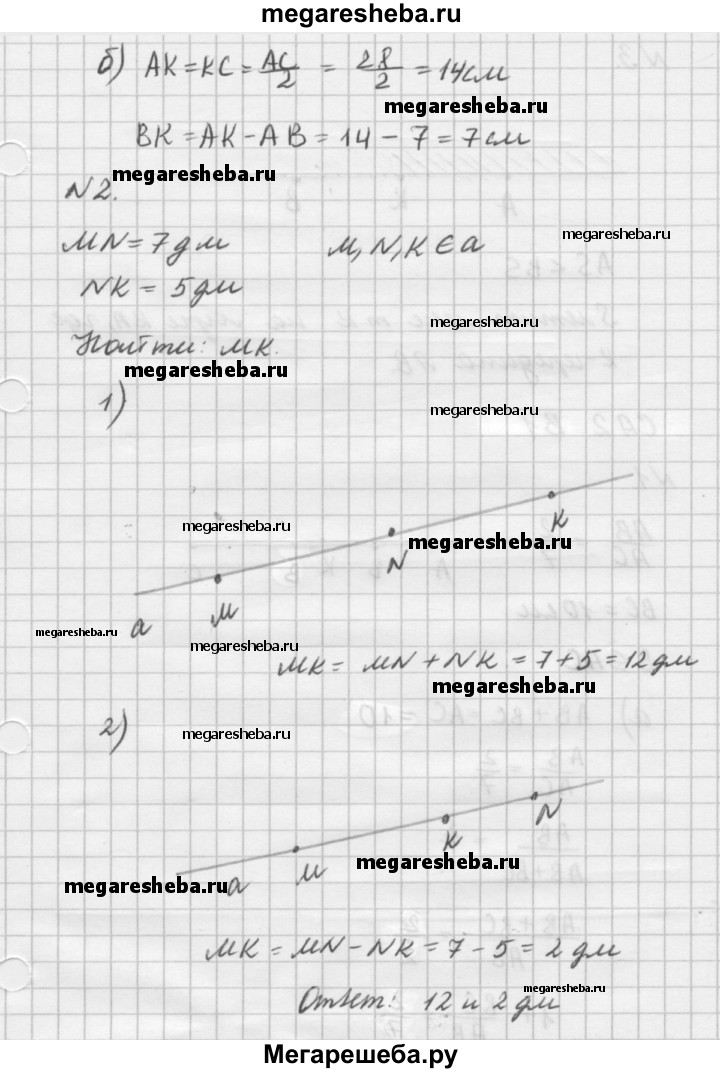 megaresheba.ru
б) AK = KC = AC/2 = 28/2 = 14 см
megaresheba.ru
BK = AK - AB = 14 - 7 = 7 см
megaresheba.ru
№2.
MN = 7 дм M, N, K ∈ a
megaresheba.ru
NK = 5 дм
megaresheba.ru
Найти: MK.
megaresheba.ru
1)
megaresheba.ru
K
megaresheba.ru
megaresheba.ru
N
M
a
megaresheba.ru
megaresheba.ru
MK = MN + NK = 7 + 5 = 12 дм
megaresheba.ru
2)
megaresheba.ru
N
K
megaresheba.ru
M
a
megaresheba.ru
MK = MN - NK = 7 - 5 = 2 дм
megaresheba.ru
Ответ: 12 и 2 дм
Мегарешеба.ру